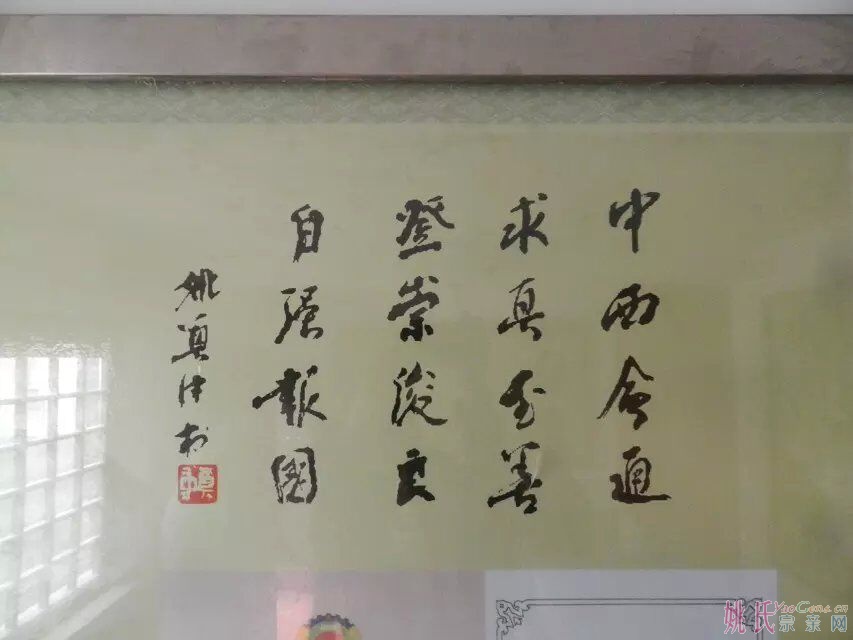 中西會通
求真至善
登崇俊良
自强報國
姚真
姚氏宗亲网
YaoGens.cn